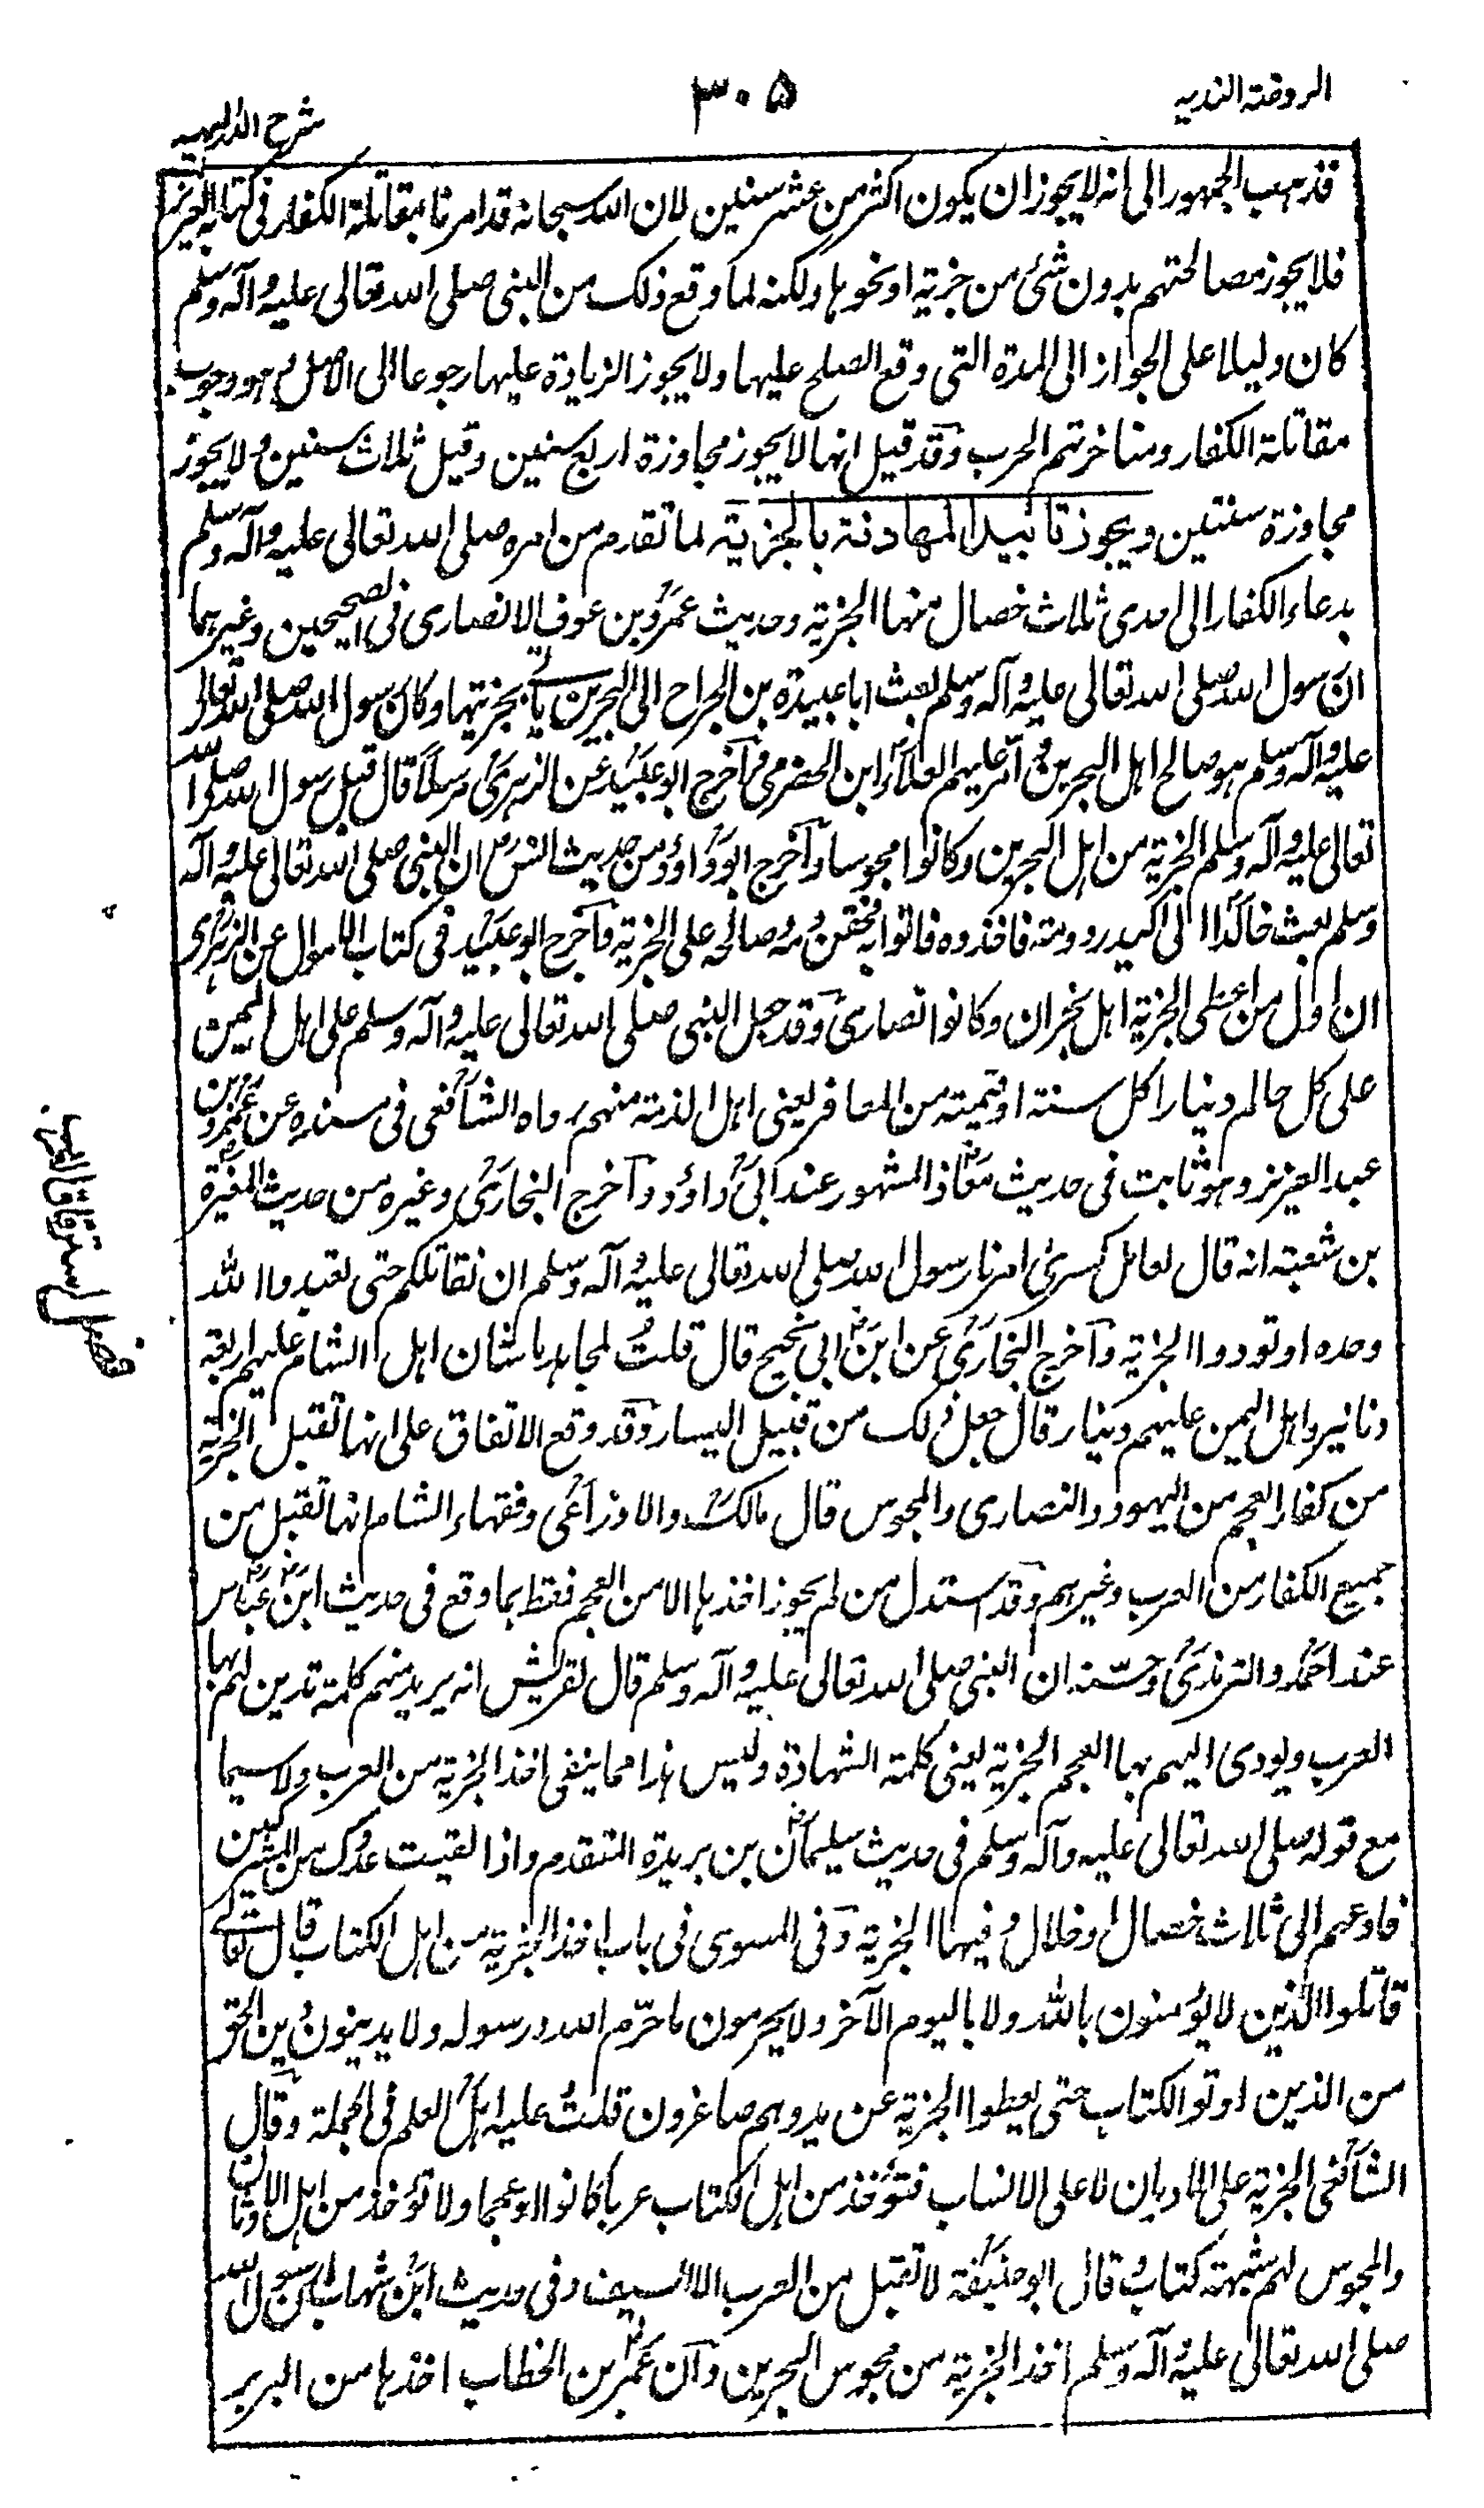 الروضة الندية
٣٠٥
شرح الدررالبهية
فذهب الجمهور الى انه لا يجوز ان يكون اكثر من عشر سنين لان الله سبحانه قد امرنا بمقاتلة الكفار فى كتابه العزيز
فلا يجوز مصالحتهم بدون شئ من جزية او نحوها ولكنه لما وقع ذلك من النبى صلى الله تعالى عليه وآله وسلم
كان دليلا على الجواز الى المدة التى وقع الصلح عليها ولا يجوز الزيادة عليها رجوعا الى الاصل وهو وجوب
مقاتلة الكفار ومناجزتهم الحرب وقد قيل انها لا يجوز مجاوزة اربع سنين وقيل ثلاث سنين ولا يجوز
مجاوزة سنتين ويجوز تابيد المهادنة بالجزية لما تقدم من امره صلى الله تعالى عليه وآله وسلم
بدعاء الكفار الى احدى ثلاث خصال منها الجزية وحديث عمرو بن عوف الانصارى فى الصحيحين وغيرهما
ان رسول الله صلى الله تعالى عليه وآله وسلم بعث ابا عبيدة بن الجراح الى البحرين يأتى بجزيتها وكان رسول الله صلى الله تعالى
عليه وآله وسلم هو صالح اهل البحرين وأمر عليهم العلاء ابن الحضرمى وأخرج ابو عبيد عن الزهرى مرسلا قال قبل رسول الله صلى الله
تعالى عليه وآله وسلم الجزية من اهل البحرين وكانوا مجوسا وأخرج ابو داود من حديث انس ان النبى صلى الله تعالى عليه وآله
وسلم بعث خالدا الى اكيدر دومة فاخذوه فاتوا به فحقن دمه وصالحه على الجزية وأخرج ابو عبيد فى كتاب الاموال عن الزهرى
ان اول من اعطى الجزية اهل نجران وكانوا نصارى وقد جعل النبى صلى الله تعالى عليه وآله وسلم على اهل اليمن
على كل حالم دينارا كل سنة او قيمته من المعافر يعنى اهل الذمة منهم رواه الشافعى فى مسنده عن عمرو بن
عبد العزيز وهو ثابت فى حديث معاذ المشهور عند ابى داود وأخرج البخارى وغيره من حديث المغيرة
بن شعبة انه قال لعامل كسرى امرنا رسول الله صلى الله تعالى عليه وآله وسلم ان نقاتلكم حتى تعبدوا الله
وحده او تودوا الجزية وأخرج البخارى عن ابن ابى نجيح قال قلت لمجاهد ما شان اهل الشام عليهم اربعة
دنانير واهل اليمن عليهم دينار قال جعل ذلك من قبيل اليسار وقد وقع الاتفاق على انها تقبل الجزية
من كفار العجم من اليهود والنصارى والمجوس قال مالك والاوزاعى وفقهاء الشام انها تقبل من
جميع الكفار من العرب وغيرهم وقد استدل من لم يجوز اخذها الا من العجم فقط بما وقع فى حديث ابن عباس
عند احمد والترمذى وحسّنه ان النبى صلى الله تعالى عليه وآله وسلم قال لقريش انه يريد منهم كلمة تدين لهم بها
العرب ويودى اليهم بها العجم الجزية يعنى كلمة الشهادة وليس هذا مما ينفى اخذ الجزية من العرب ولا سيما
مع قوله صلى الله تعالى عليه وآله وسلم فى حديث سليمان بن بريدة المتقدم واذا لقيت عدوك من المشركين
فادعهم الى ثلاث خصال او خلال وفيها الجزية وفى المسوى فى باب اخذ الجزية من اهل الكتاب قال تعالى
قاتلوا الذين لا يؤمنون بالله ولا باليوم الآخر ولا يحرمون ما حرّم الله ورسوله ولا يدينون دين الحق
من الذين اوتوا الكتاب حتى يعطوا الجزية عن يد وهم صاغرون قلت عليه اهل العلم فى الجملة وقال
الشافعى الجزية على الاديان لا على الانساب فتؤخذ من اهل الكتاب عربا كانوا او عجما ولا تؤخذ من اهل الاوثان
والمجوس لهم شبهة كتاب قال ابو حنيفة لا تقبل من العرب الا السيف وفى حديث ابن شهاب ان رسول الله
صلى الله تعالى عليه وآله وسلم اخذ الجزية من مجوس البحرين وان عمر ابن الخطاب اخذها من البربر